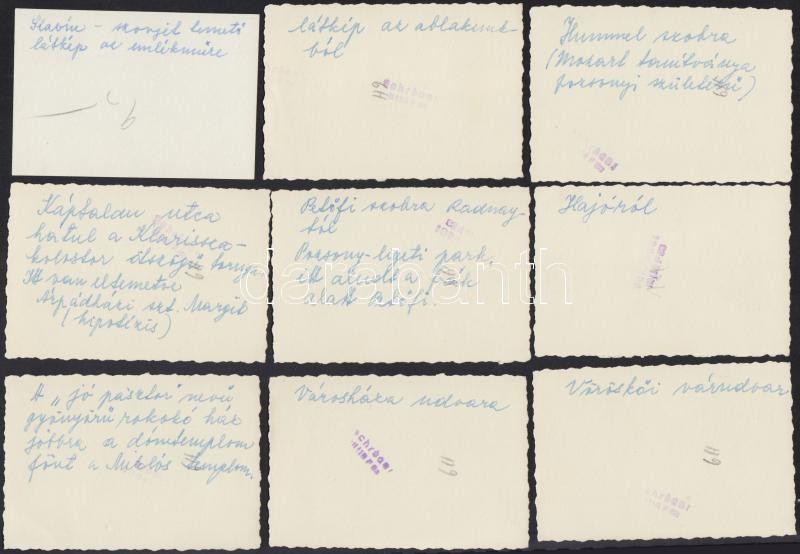 Slavin – szovjet temető
látkép az emlékműre
látkép az ablakunk-
ból
Hummel szobra
(Mozart tanítványa
pozsonyi születésű)
Káptalan utca
hátul a Klarissza-
kolostor ötszögű tornya
Itt van eltemetve
Árpádházi szt. Margit
(hipotézis)
Petőfi szobra Radnay-
tól
Pozsony-ligeti park,
itt állt a fák
alatt Petőfi.
Hajóról
A „jó pásztor" nevű
gyönyörű rokokó ház
jobbra a dómtemplom
fönt a Miklós templom.
Városháza udvara
Vöröskői várudvar
darabanth